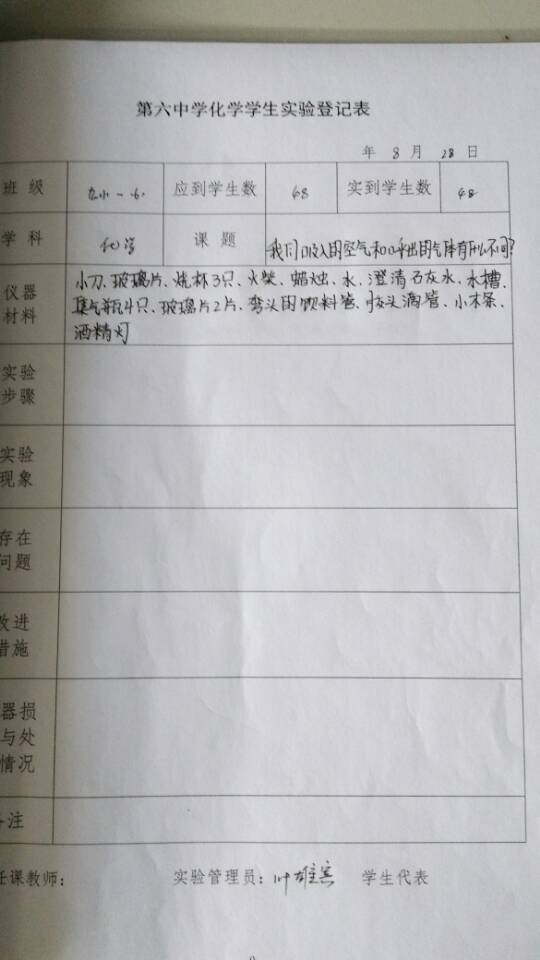 第六中学化学学生实验登记表
年 8 月 28 日
班 级 应到学生数 48 实到学生数 48
学 科 化学 课 题 我们吸入的空气和呼出的气体有什么不同?
仪器 小刀、玻璃片、烧杯3只、火柴、蜡烛、水、澄清石灰水、水槽、
材料 集气瓶4只、玻璃片2片、弯头的饮料管、胶头滴管、小木条、
酒精灯
实验
步骤
实验
现象
存在
问题
改进
措施
器损
与处
情况
注
任课教师: 实验管理员:叶雄宾 学生代表